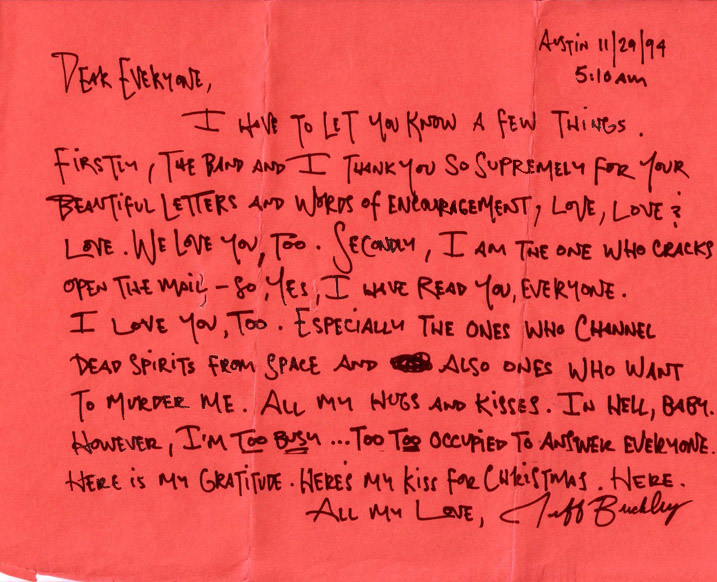 Austin 11/29/94
5:10 AM
Dear Everyone,
I have to let you know a few things.
Firstly, the band and I thank you so supremely for your
beautiful letters and words of encouragement, love, love &
love. We love you, too. Secondly, I am the one who cracks
open the mail, - so, yes, I have read you, everyone.
I love you, too. Especially the ones who channel
dead spirits from space and also ones who want
to murder me. All my hugs and kisses. In hell, baby.
However, I'm too busy ... too too occupied to answer everyone.
Here is my gratitude. Here's my kiss for Christmas. Here.
All my love, Jeff Buckley